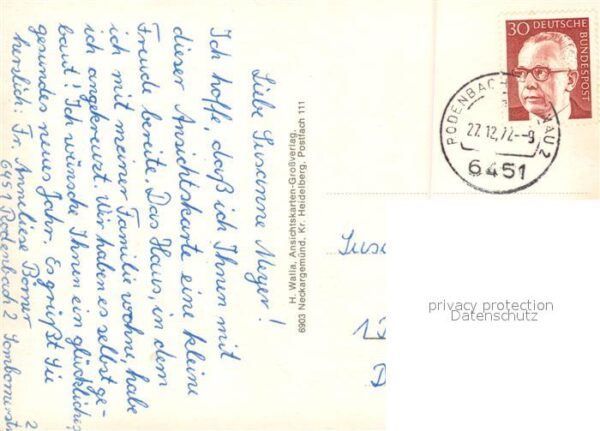 Liebe Susanne Meyer!
Ich hoffe, daß ich Ihnen mit
dieser Ansichtskarte eine kleine
Freude bereite. Das Haus, in dem
ich mit meiner Familie wohne, habe
ich angekreuzt. Wir haben es selbst ge-
baut! Ich wünsche Ihnen ein glückliches
gesundes neues Jahr. Es grüßt Sie
herzlich: Fr. Anneliese
6451 Rodenbach 2
2
H. Walla, Ansichtskarten-Großverlag,
6903 Neckargemünd, Kr. Heidelberg, Postfach 111
30 DEUTSCHE BUNDESPOST
RODENBACH
NAU 2
27.12.72--9
6451
privacy protection
Datenschutz